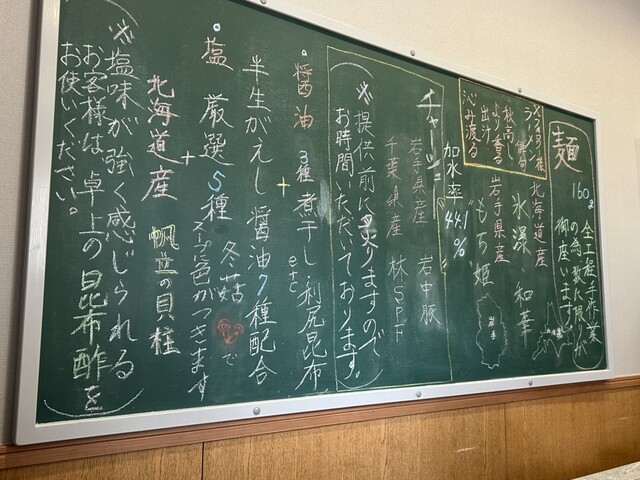 麺 160g
全工程手作業
の為、数に限りが
御座います。
北海道産
氷瀑・和華
岩手県産
もち姫
岩手
ラーメン俳句
秋高し
より香る
出汁
沁み渡る
加水率
44.1
%
チャーシュー
岩手県産 岩中豚
千葉県産 林SPF
※提供前に炙りますので
お時間いただいております。
・醤油 3種煮干し、利尻昆布
etc
+
半生がえし醤油7種配合
・塩 厳選5種
冬菇 で
スープに色がつきます
+
北海道産 帆立の貝柱
※塩味が強く感じられる
お客様は卓上の昆布酢を
お使いください。